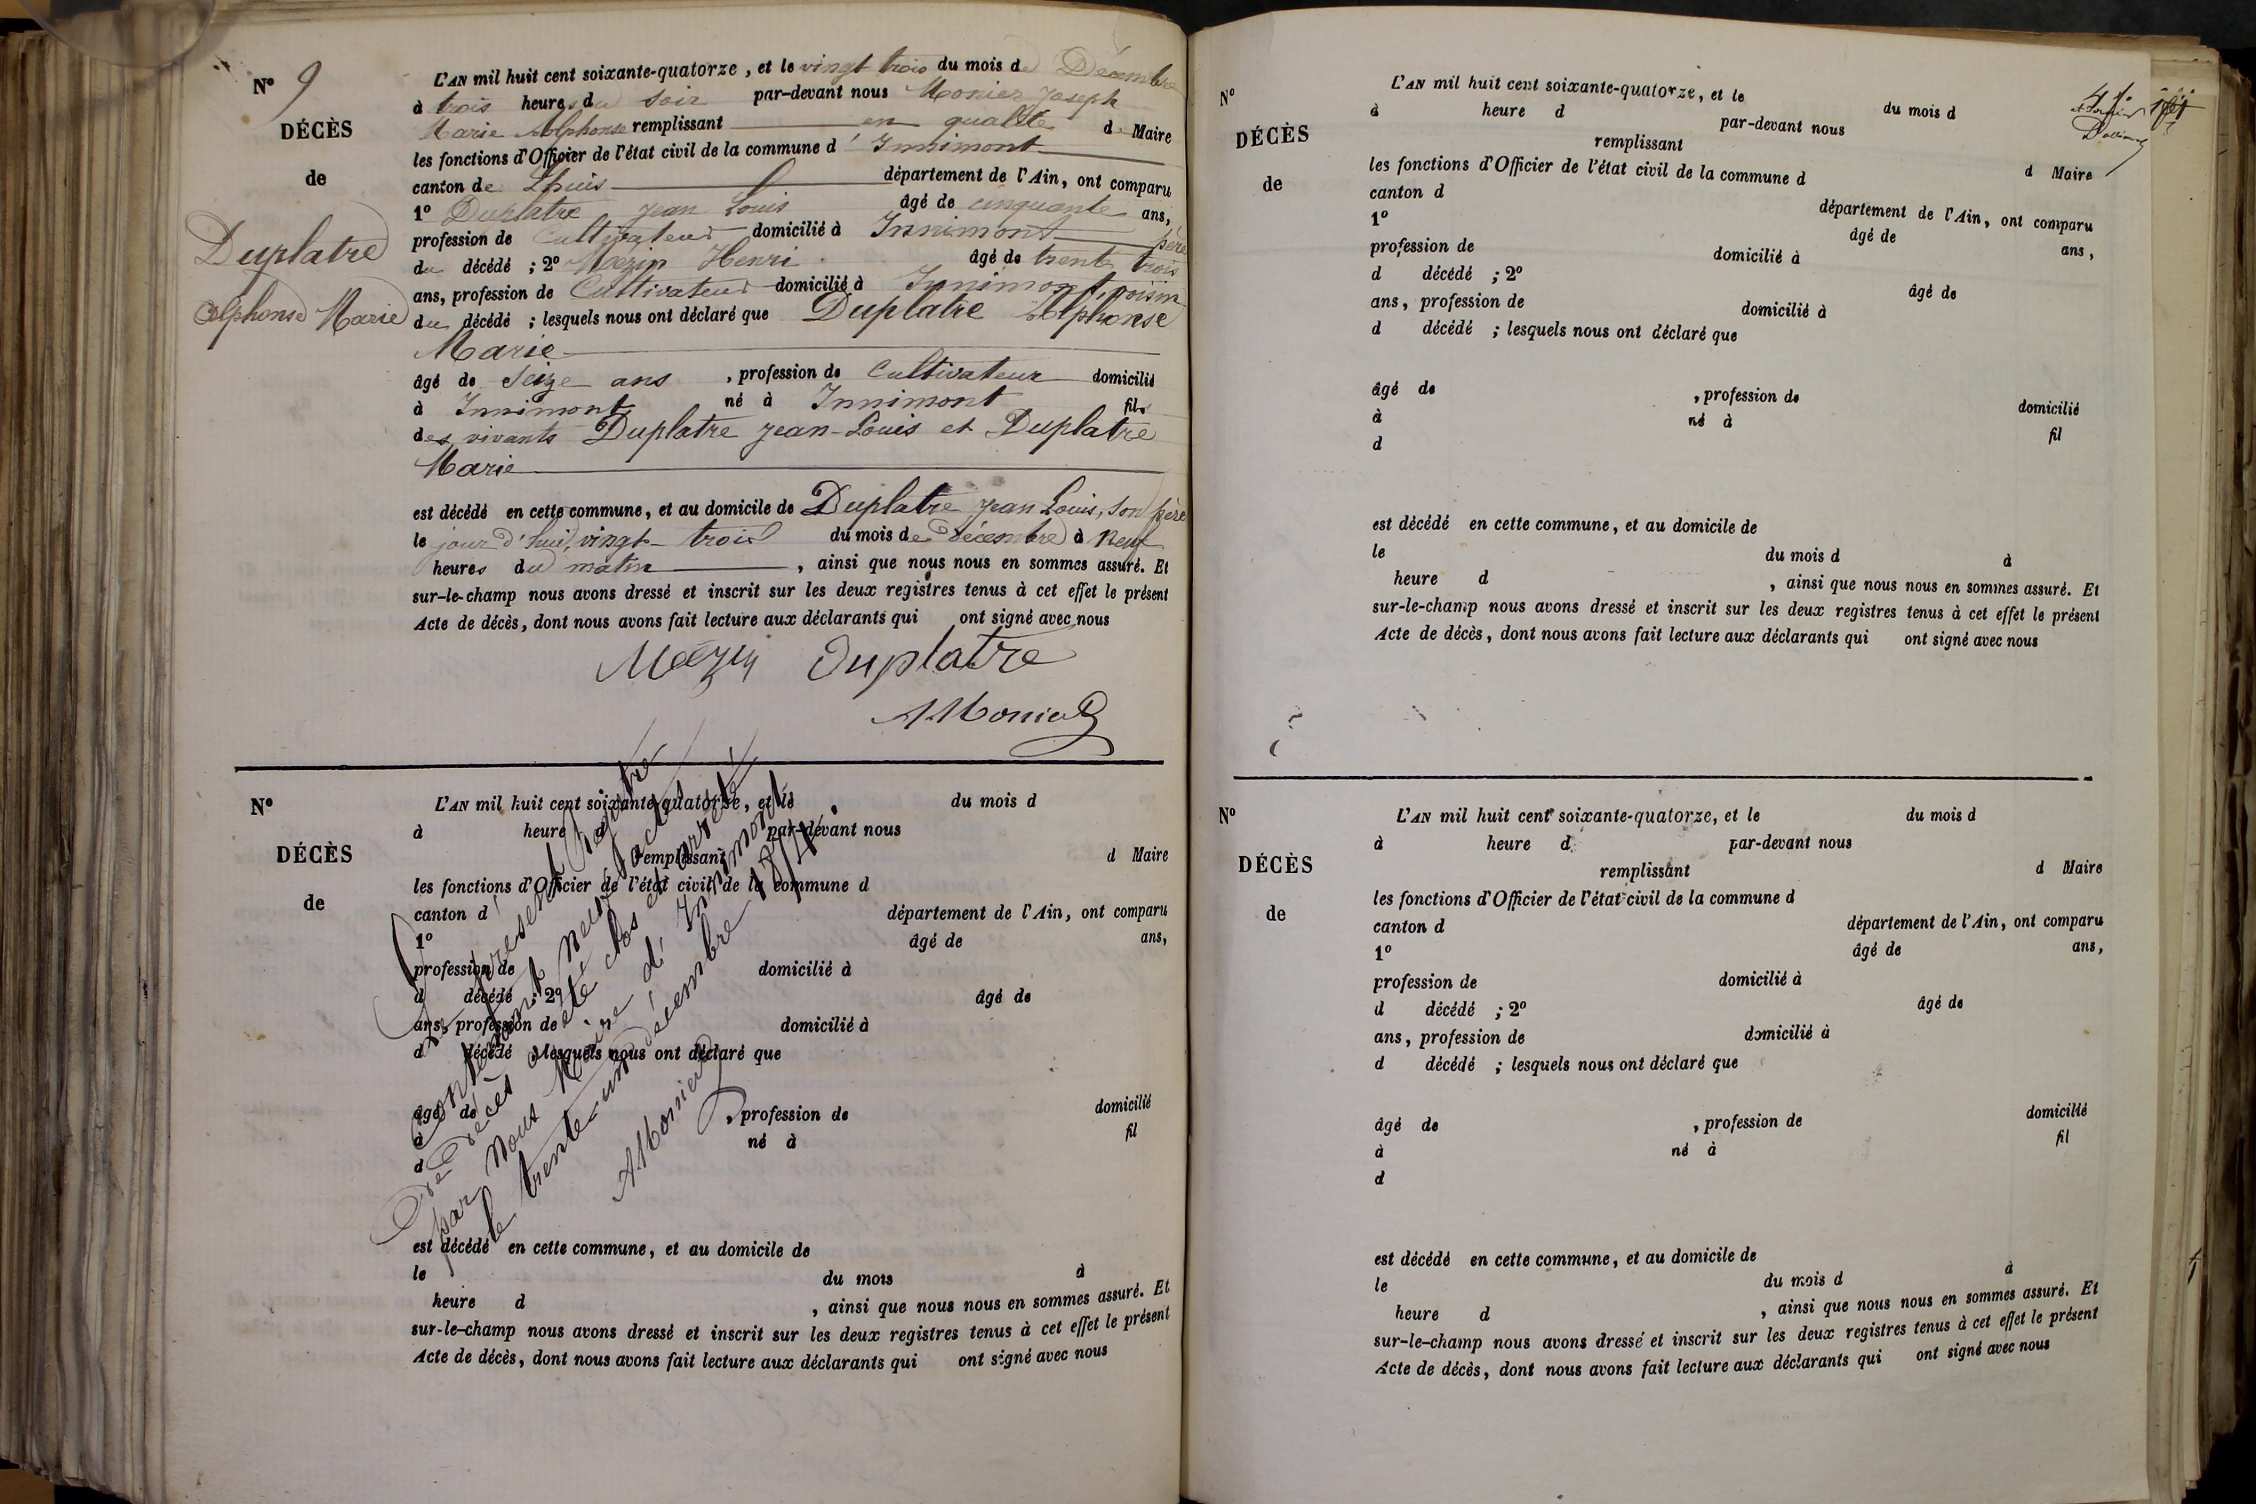 N° 9
DÉCÈS
de
Duplatre
Alphonse Marie
L'AN mil huit cent soixante-quatorze, et le vingt trois du mois de Décembre
à trois heures du soir par-devant nous Monier Joseph
Marie Alphonse remplissant en qualité de Maire
les fonctions d'Officier de l'état civil de la commune d'Innimont
canton de Lhuis département de l'Ain, ont comparu
1° Duplatre Jean Louis âgé de cinquante ans,
profession de Cultivateur domicilié à Innimont père
du décédé ; 2° Mezin Henri âgé de trente trois
ans, profession de Cultivateur domicilié à Innimont, voisin
du décédé ; lesquels nous ont déclaré que Duplatre Alphonse
Marie
âgé de Seize ans , profession de Cultivateur domicilié
à Innimont né à Innimont fils
des vivants Duplatre Jean-Louis et Duplatre
Marie
est décédé en cette commune, et au domicile de Duplatre Jean Louis, son père
le jour d'hui, vingt-trois du mois de décembre à neuf
heures du matin , ainsi que nous nous en sommes assuré. Et
sur-le-champ nous avons dressé et inscrit sur les deux registres tenus à cet effet le présent
Acte de décès, dont nous avons fait lecture aux déclarants qui ont signé avec nous
Mezin Duplatre
A Monier
N°
DÉCÈS
de
L'AN mil huit cent soixante-quatorze, et le du mois d
à heure d par-devant nous
remplissant d Maire
les fonctions d'Officier de l'état civil de la commune d
canton d département de l'Ain, ont comparu
1° âgé de ans,
profession de domicilié à
d décédé ; 2° âgé de
ans, profession de domicilié à
d décédé ; lesquels nous ont déclaré que
âgé de , profession de domicilié
à né à fil
d
est décédé en cette commune, et au domicile de
le du mois à
heure d , ainsi que nous nous en sommes assuré. Et
sur-le-champ nous avons dressé et inscrit sur les deux registres tenus à cet effet le présent
Acte de décès, dont nous avons fait lecture aux déclarants qui ont signé avec nous
Le présent Registre
contenant neuf actes
de décès a été clos et arrêté
par Nous Maire d'Innimont
le trente-un décembre 1874.
A Monier
N°
DÉCÈS
de
L'AN mil huit cent soixante-quatorze, et le du mois d
à heure d par-devant nous
remplissant d Maire
les fonctions d'Officier de l'état civil de la commune d
canton d département de l'Ain, ont comparu
1° âgé de ans,
profession de domicilié à
d décédé ; 2° âgé de
ans, profession de domicilié à
d décédé ; lesquels nous ont déclaré que
âgé de , profession de domicilié
à né à fil
d
est décédé en cette commune, et au domicile de
le du mois d à
heure d , ainsi que nous nous en sommes assuré. Et
sur-le-champ nous avons dressé et inscrit sur les deux registres tenus à cet effet le présent
Acte de décès, dont nous avons fait lecture aux déclarants qui ont signé avec nous
N°
DÉCÈS
de
L'AN mil huit cent soixante-quatorze, et le du mois d
à heure d par-devant nous
remplissant d Maire
les fonctions d'Officier de l'état civil de la commune d
canton d département de l'Ain, ont comparu
1° âgé de ans,
profession de domicilié à
d décédé ; 2° âgé de
ans, profession de domicilié à
d décédé ; lesquels nous ont déclaré que
âgé de , profession de domicilié
à né à fil
d
est décédé en cette commune, et au domicile de
le du mois d à
heure d , ainsi que nous nous en sommes assuré. Et
sur-le-champ nous avons dressé et inscrit sur les deux registres tenus à cet effet le présent
Acte de décès, dont nous avons fait lecture aux déclarants qui ont signé avec nous